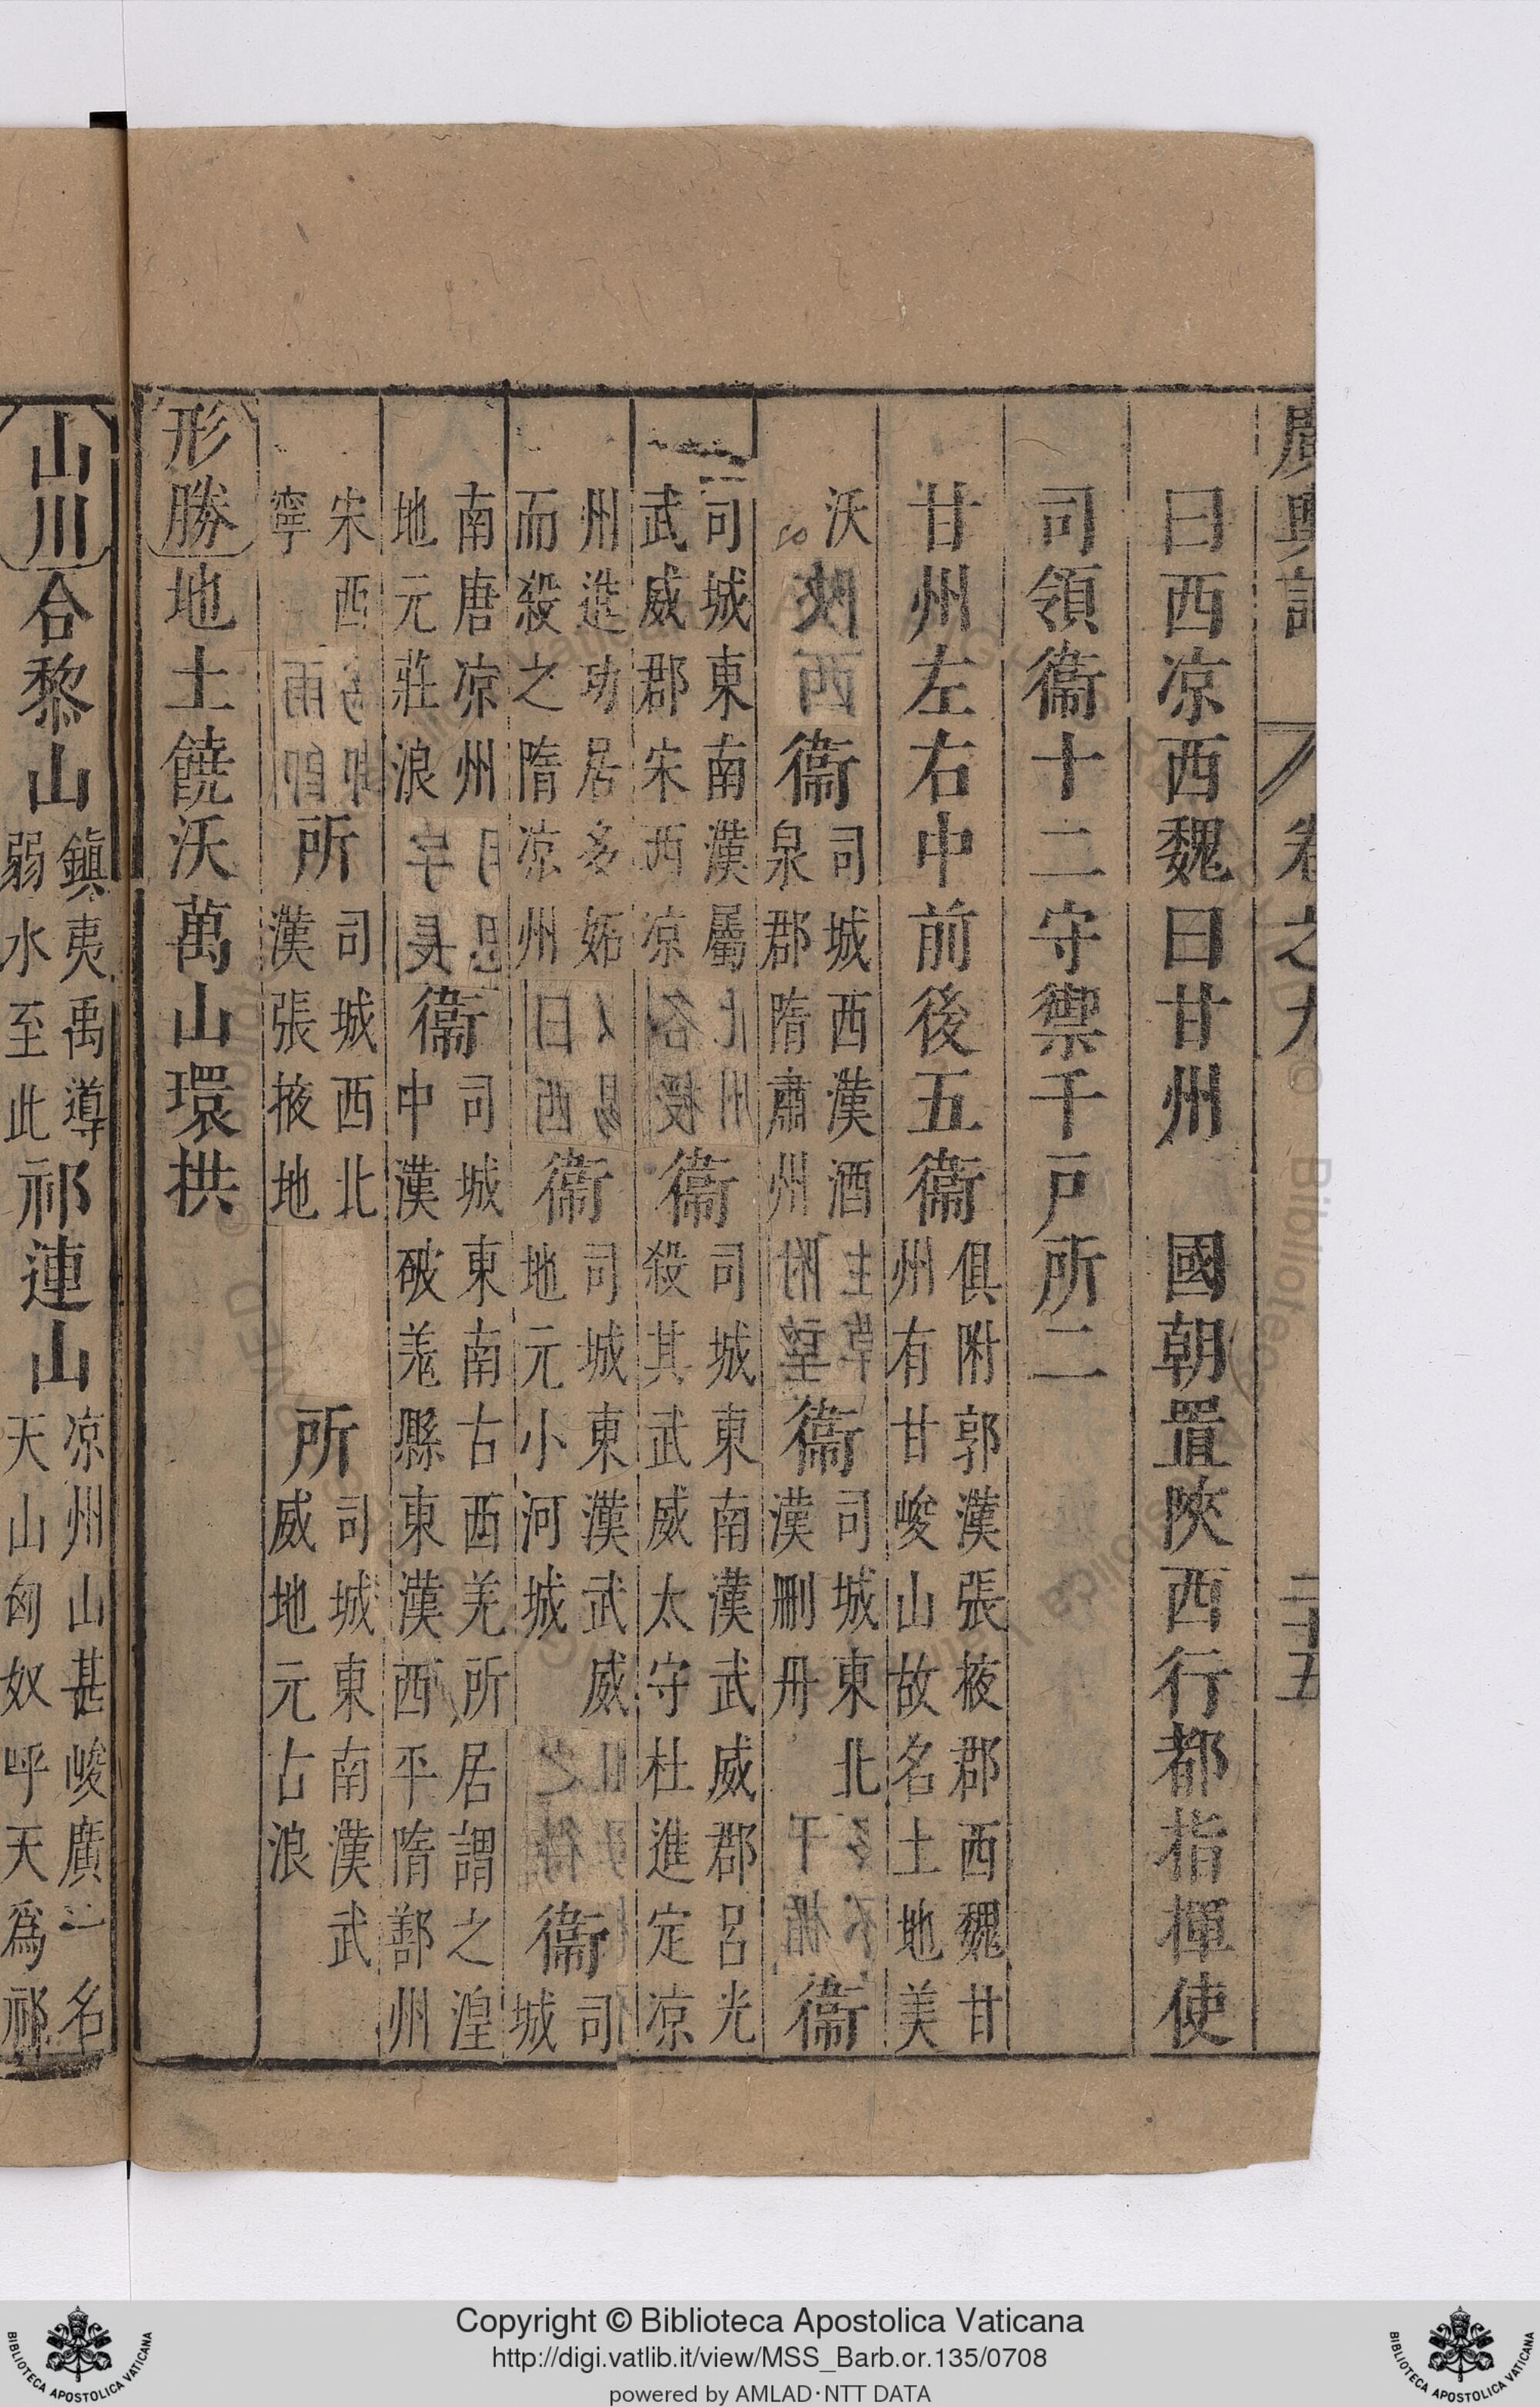 廣輿記 卷之九 二十五
曰西凉西魏曰甘州 國朝置陝西行都指揮使
司領衞十二守禦千戸所二
甘州左右中前後五衞俱附郭漢張掖郡西魏甘
州有甘峻山故名土地美
沃 衞司城西漢酒
泉郡隋肅州 衞司城東北
漢刪丹 衞
司城東南漢屬
武威郡宋西凉 衞司城東南漢武威郡呂光
殺其武威太守杜進定凉
州進功居多姊
而殺之隋凉州 衞司城東漢武威
地元小河城 衞司
城
南唐凉州
地元莊浪 衞司城東南古西羌所居謂之湟
中漢破羗縣東漢西平隋鄯州
宋西
寧 所司城西北
漢張掖地 所司城東南漢武
威地元古浪
形勝地土饒沃萬山環拱
山川合黎山鎮夷禹導
弱水至此祁連山凉州山甚峻廣一名
天山匈奴呼天爲祁
Copyright © Biblioteca Apostolica Vaticana
http://digi.vatlib.it/view/MSS_Barb.or.135/0708
powered by AMLAD·NTT DATA
BIBLIOTECA APOSTOLICA VATICANA
BIBLIOTECA APOSTOLICA VATICANA